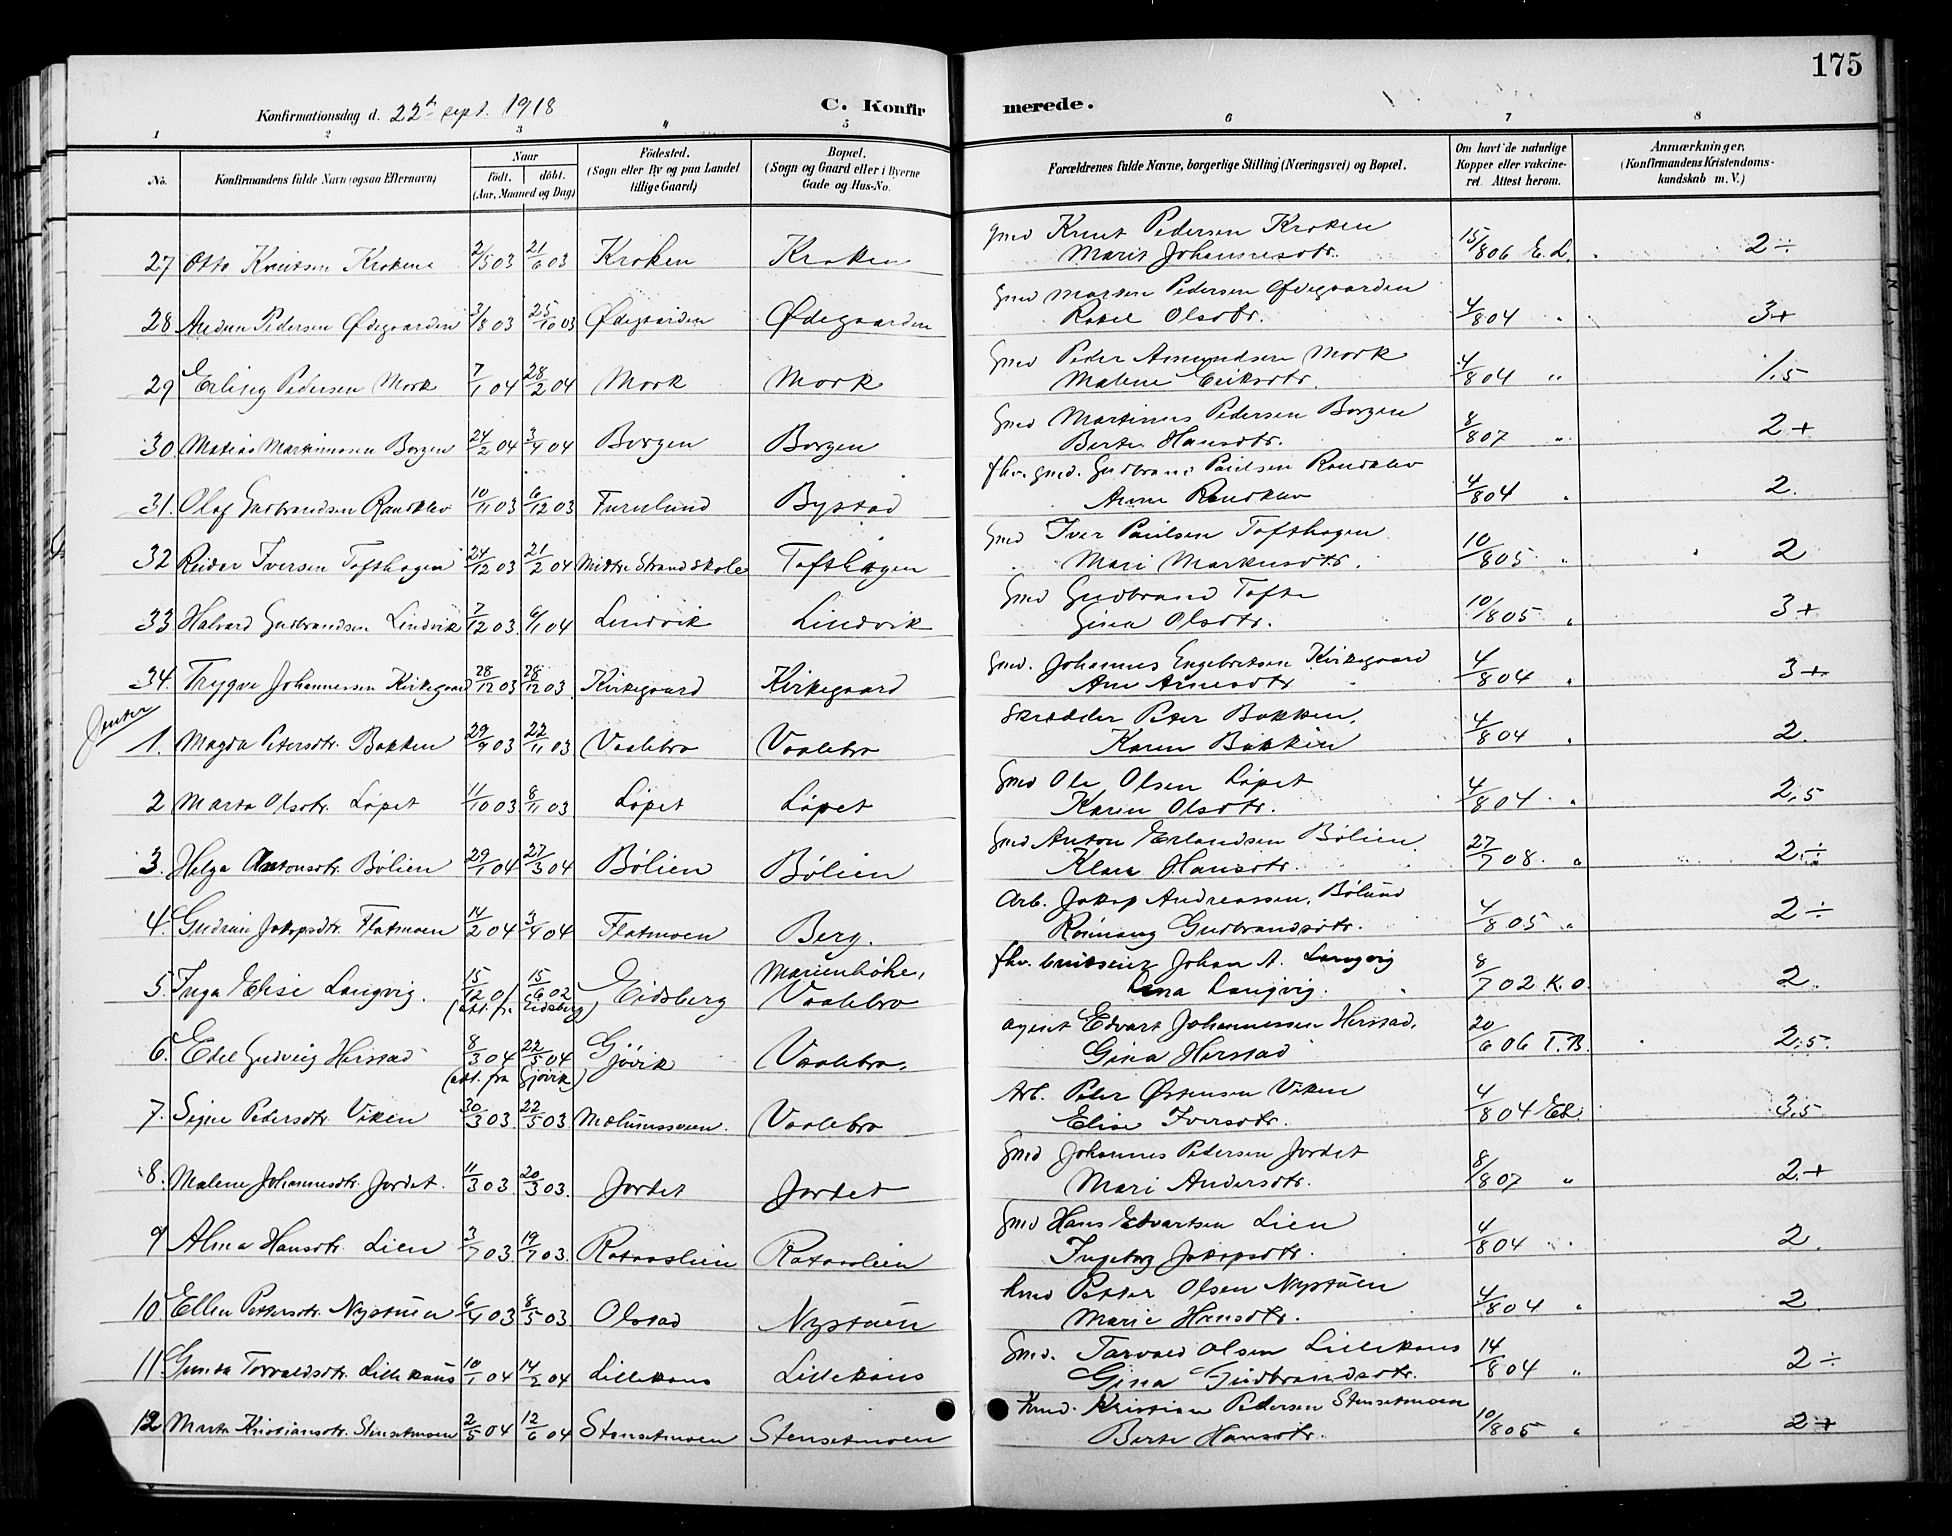 175
Konfirmationsdag d. 22de sept. 1918
C. Konfirmerede.
1 2 3 4 5 6 7 8
No.
Konfirmandens fulde Navn (ogsaa Efternavn)
Naar
födt. döbt.
(Aar, Maaned og Dag)
Födested.
(Sogn eller By og paa Landet
tillige Gaard)
Bopæl.
(Sogn og Gaard eller i Byerne
Gade og Hus-No.
Forældrenes fulde Navne, borgerlige Stilling (Næringsvei) og Bopæl.
Om havt de naturlige
Kopper eller vakcine-
ret. Attest herom.
Anmærkninger.
(Konfirmandens Kristendoms-
kundskab m. V.)
27 Otto Knutsen Krokene 2/5 03 21/6 03 Kroken Kroken Gmd Knut Pedersen Kroken
Marit Johannesdtr. 15/8 06 E.L. 2÷
28 Audun Pedersen Ødegaarden 3/8 03 25/10 03 Ødegaarden Ødegaarden Gmd Morten Pedersen Ødegaarden
Rakel Olsdtr. 4/8 04 " 3+
29 Erling Pedersen Mork 7/1 04 28/2 04 Mork Mork Gmd Peder Amundsen Mork
Malene Eriksdtr. 4/8 04 " 1,5
30 Matias Martinusen Borgen 24/2 04 3/4 04 Borgen Borgen Gmd Martinus Pedersen Borgen
Berte Hansdtr. 8/8 07 " 2+
31. Olaf Gudbrandsen Randklev 10/11 03 6/12 03 Furulund Bystad fhv. gmd. Gudbrand Paulsen Randklev
Anne Randklev 4/8 04 " 2.
32 Reidar Iversen Tofthagen 24/12 03 21/2 04 Midtre Strand skole Tofthagen Gmd Iver Paulsen Tofthagen
Mari Markusdtr. 10/8 05 " 2
33 Halvard Gudbrandsen Lindvik 7/12 03. 6/1 04 Lindvik Lindvik Gmd Gudbrand Tofte
Gina Olsdtr. 10/8 05 " 3+
34. Trygve Johannessen Kirkegaard 28/12 03 28/12 03. Kirkegaard Kirkegaard Gmd. Johannes Engebretsen Kirkegaard
Ane Arnesdtr. 4/8 04 " 3+
Jenter
1. Magda Petersdtr. Bakken 29/9 03 22/11 03 Vaalebro Vaalebro Skrædder Peter Bakken,
Karen Bakken 4/8 04 " 2.
2 Marta Olsdtr. Løpet 11/10 03 8/11 03 Løpet Løpet Gmd Ole Olsen Løpet
Karen Olsdtr. 4/8 04 " 2,5
3. Helga Antonsdtr. Bølien 29/1 04 27/3 04 Bølien Bølien Gmd Anton Erlandsen Bølien
Klara Hansdtr. 27/7 08. " 2÷
4. Gudrun Jakopsdtr. Flatmoen 14/2 04 3/4 04 Flatmoen Berg. Arb. Jakop Andreassen, Bølund
Rønnaug Gudbrandsdtr. 4/8 05 " 2÷
5. Inga Elise Langvig. 15/12 01 15/6 02 Eidsberg Marienhöhe,
(att. fr. Eidsberg) Vaalebro fhv. Johan A. Langvig
Lina Langvig. 8/7 02 K.O. 2.
6. Edel Gudveig Herstad 8/3 04 22/5 04 Gjövik Vaalebro. Agent Edvart Johannessen Herstad,
(att. fra Gjövik) Gina Herstad 20/6 06 T.B. 2,5.
7. Signe Pedersdtr. Viken 30/3 03. 22/5 03 Mælumsveen. Vaalebro Arb. Peter Østensen Viken
Elise Iversdtr. 4/8 04 E.L. 3,5
8. Malene Johannesdtr. Jordet. 11/3 03. 20/3 03. Jordet Jordet Gmd Johannes Pedersen Jordet
Mari Andersdtr. 8/8 07 " 2+
9 Alma Hansdtr. Lien 3/7 03. 19/7 03. Rataaslien Rataaslien Gmd Hans Edvartsen Lien
Ingeborg Jakopsdtr. 4/8 04 " 2.
10 Ellen Pettersdtr. Nystuen 6/4 03 8/5 03 Olstad Nystuen Hmd Petter Olsen Nystuen
Marie Hansdtr. 4/8 04 " 2
11 Gunda Torvaldsdtr. Lillekaus 10/1 04 14/2 04 Lillekaus Lillekaus Gmd. Torvald Olsen Lillekaus
Gina Gudbrandsdtr. 14/8 04 " 2÷
12 Marta Kristiansdtr. Stensetmoen 2/5 04 12/6 04 Stensetmoen Stensetmoen Hmd. Kristian Pedersen Stensetmoen
Berte Hansdtr. 10/8 05 " 2+